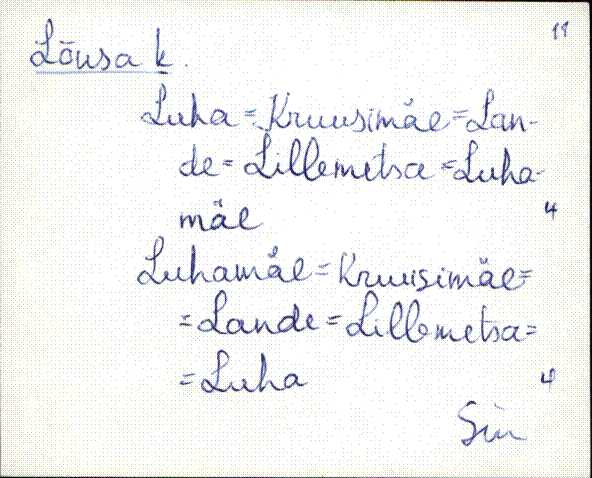 11
Lõusa k.
Luha = Kruusimäe = Lan-
de = Lillemetsa = Luha-
mäe 4
Luhamäe = Kruusimäe =
= Lande = Lillemetsa =
= Luha 4